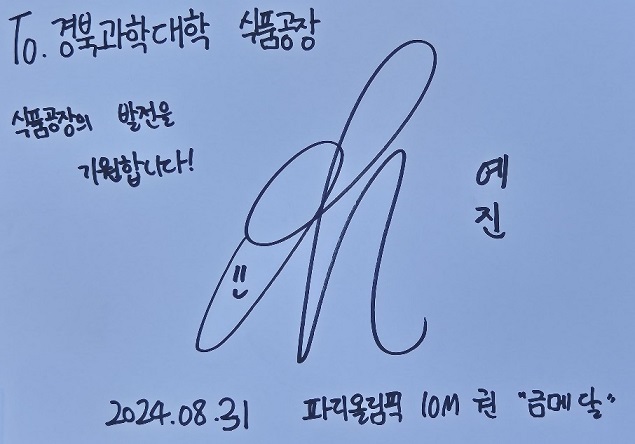 To. 경북과학대학 식품공장
식품공장의 발전을
기원합니다!
예
진
2024.08.31 파리올림픽 10M 권 "금메달"